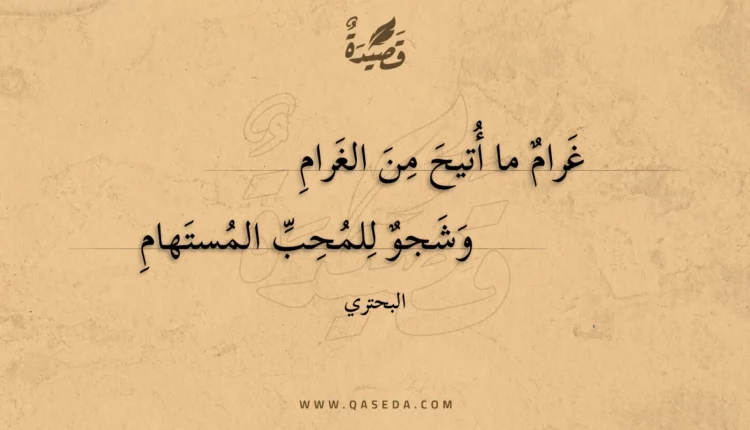 قَصِيْدَةٌ
غَرامٌ ما أُتيحَ مِنَ الغَرامِ
وَشَجوٌ لِلمُحِبِّ المُستَهامِ
البحتري
WWW.QASEDA.COM